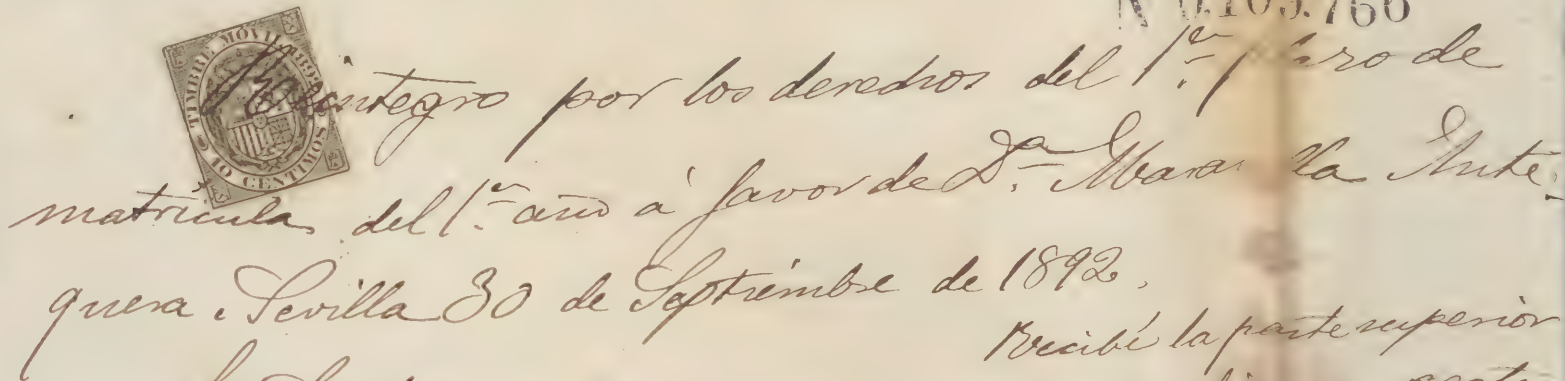 Nº 0.109.766
TIMBRE MÓVIL 1892
40 CENTIMOS
Reintegro por los derechos del 1er plazo de
matrícula del 1er año á favor de Dª Ante-
quera. Sevilla 30 de Septiembre de 1892.
Recibí la parte superior